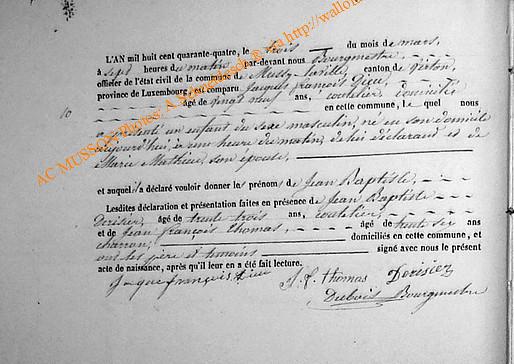 L'AN mil huit cent quarante-quatre, le trois du mois de mars,
à sept heures du matin par-devant nous Bourgmestre
officier de l'état civil de la commune de Mussy-la-ville, canton de Virton,
province de Luxembourg, est comparu Jacques François
âgé de vingt neuf ans, coutelier, domicilié
10 en cette commune, le quel nous
a présenté un enfant du sexe masculin, né en son domicile
aujourd'hui, à une heure du matin, de lui déclarant et de
Marie Mathieu, son épouse,
et auquel il a déclaré vouloir donner les prénoms de Jean Baptiste
Lesdites déclaration et présentation faites en présence de Jean Baptiste
Dorisier, âgé de trente trois ans, coutelier,
et de Jean François Thomas, âgé de trente six ans
charron, domiciliés en cette commune, et
ont les père et témoins signé avec nous le présent
acte de naissance, après qu'il leur en a été fait lecture.
J. f. thomas Dorisier
Dubois Bourgmestre
AC MUSSON Photos: A. http://wallo